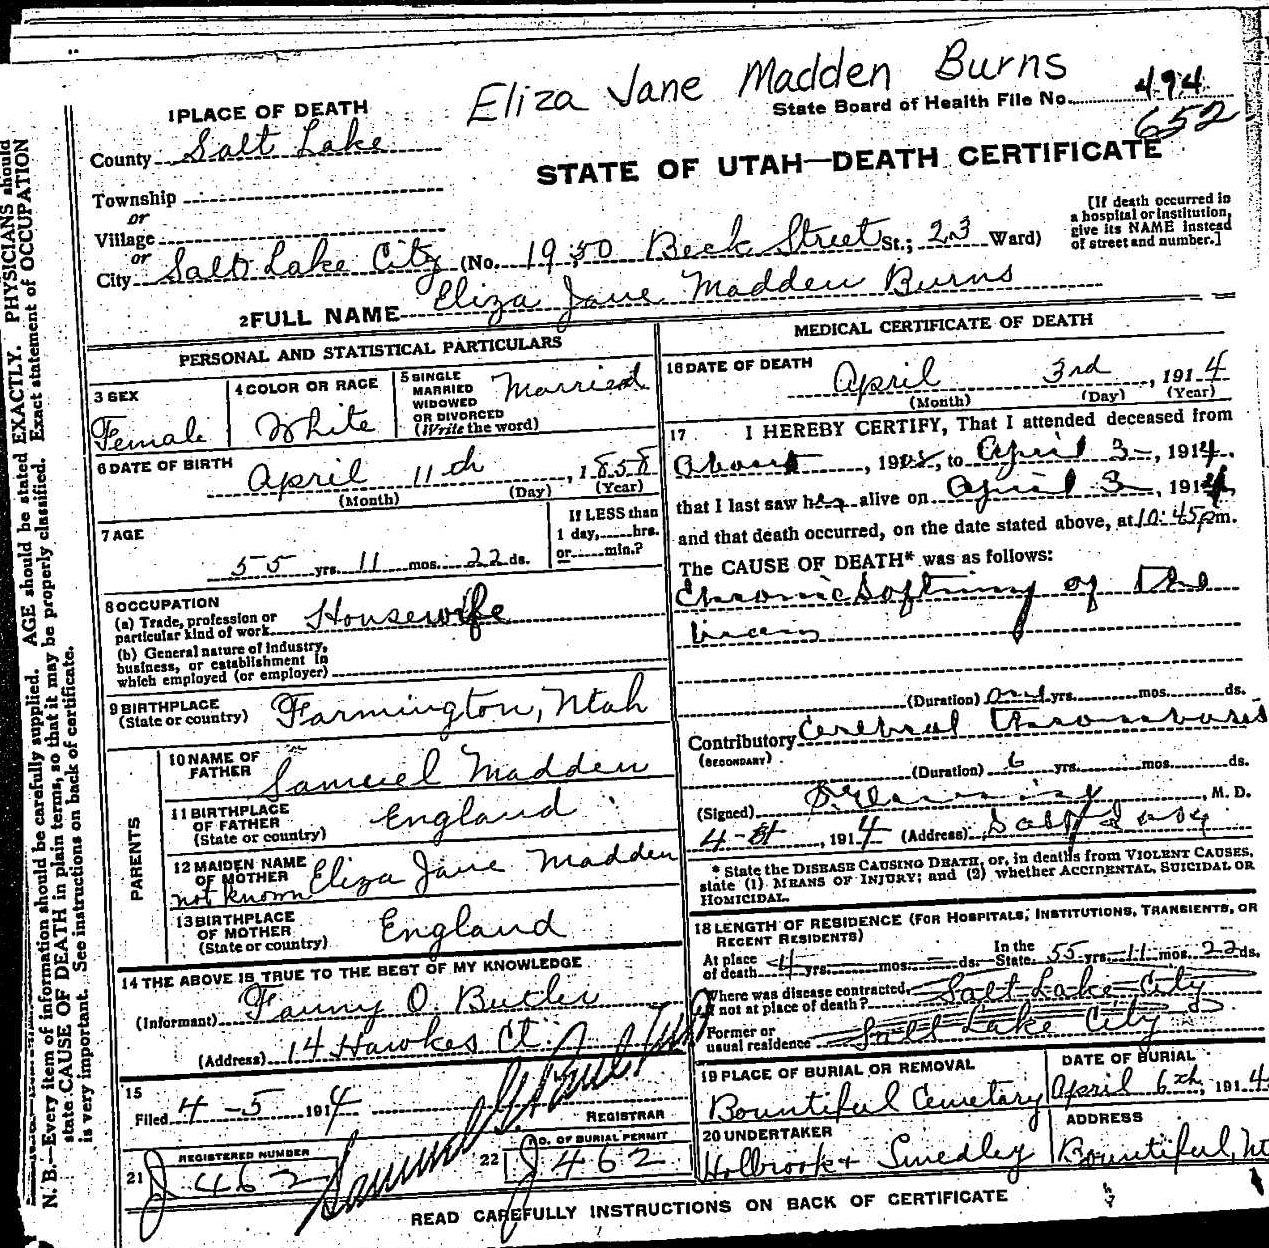 Eliza Jane Madden Burns
State Board of Health File No. 494
652
1 PLACE OF DEATH
County Salt Lake
STATE OF UTAH—DEATH CERTIFICATE
Township
or
Village
or
City Salt Lake City (No. 1950 Beck Street St.; 23 Ward)
[If death occurred in
a hospital or institution,
give its NAME instead
of street and number.]
2 FULL NAME Eliza Jane Madden Burns
PERSONAL AND STATISTICAL PARTICULARS
3 SEX
Female
4 COLOR OR RACE
White
5 SINGLE
MARRIED
WIDOWED
OR DIVORCED
(Write the word)
Married
6 DATE OF BIRTH
April 11th, 1858
(Month) (Day) (Year)
7 AGE
55 yrs. 11 mos. 22 ds.
If LESS than
1 day, hrs.
or min.?
8 OCCUPATION
(a) Trade, profession or
particular kind of work Housewife
(b) General nature of industry,
business, or establishment in
which employed (or employer)
9 BIRTHPLACE
(State or country) Farmington, Utah
PARENTS
10 NAME OF
FATHER
Samuel Madden
11 BIRTHPLACE
OF FATHER
(State or country)
England
12 MAIDEN NAME
OF MOTHER
not known Eliza Jane Madden
13 BIRTHPLACE
OF MOTHER
(State or country)
England
14 THE ABOVE IS TRUE TO THE BEST OF MY KNOWLEDGE
(Informant) Fanny O. Butler
(Address) 14 Hawkes Ct.
15
Filed 4-5 1914
REGISTRAR
REGISTERED NUMBER
21 J 462
NO. OF BURIAL PERMIT
22 J 462
MEDICAL CERTIFICATE OF DEATH
16 DATE OF DEATH
April 3rd, 1914
(Month) (Day) (Year)
17 I HEREBY CERTIFY, That I attended deceased from
About, 191, to April 3, 1914.
that I last saw her alive on April 3, 1914,
and that death occurred, on the date stated above, at 10:45 p m.
The CAUSE OF DEATH* was as follows:
Chronic Softning of the
brain
(Duration) yrs. mos. ds.
Contributory Cerebral Thrombosis
(SECONDARY)
(Duration) 6 yrs. mos. ds.
(Signed) , M. D.
4- , 1914 (Address)
* State the DISEASE CAUSING DEATH, or, in deaths from VIOLENT CAUSES,
state (1) MEANS OF INJURY; and (2) whether ACCIDENTAL, SUICIDAL OR
HOMICIDAL.
18 LENGTH OF RESIDENCE (FOR HOSPITALS, INSTITUTIONS, TRANSIENTS, OR
RECENT RESIDENTS)
At place
of death 4 yrs. — mos. — ds. In the State 55 yrs. 11 mos. 22 ds.
Where was disease contracted,
if not at place of death? Salt Lake City
Former or
usual residence Salt Lake City
19 PLACE OF BURIAL OR REMOVAL
Bountiful Cemetary
DATE OF BURIAL
April 6th, 1914
20 UNDERTAKER
Holbrook & Smedley
ADDRESS
Bountiful, Ut
READ CAREFULLY INSTRUCTIONS ON BACK OF CERTIFICATE
N. B.—Every item of information should be carefully supplied. AGE should be stated EXACTLY. PHYSICIANS should
state CAUSE OF DEATH in plain terms, so that it may be properly classified. Exact statement of OCCUPATION
is very important. See instructions on back of certificate.